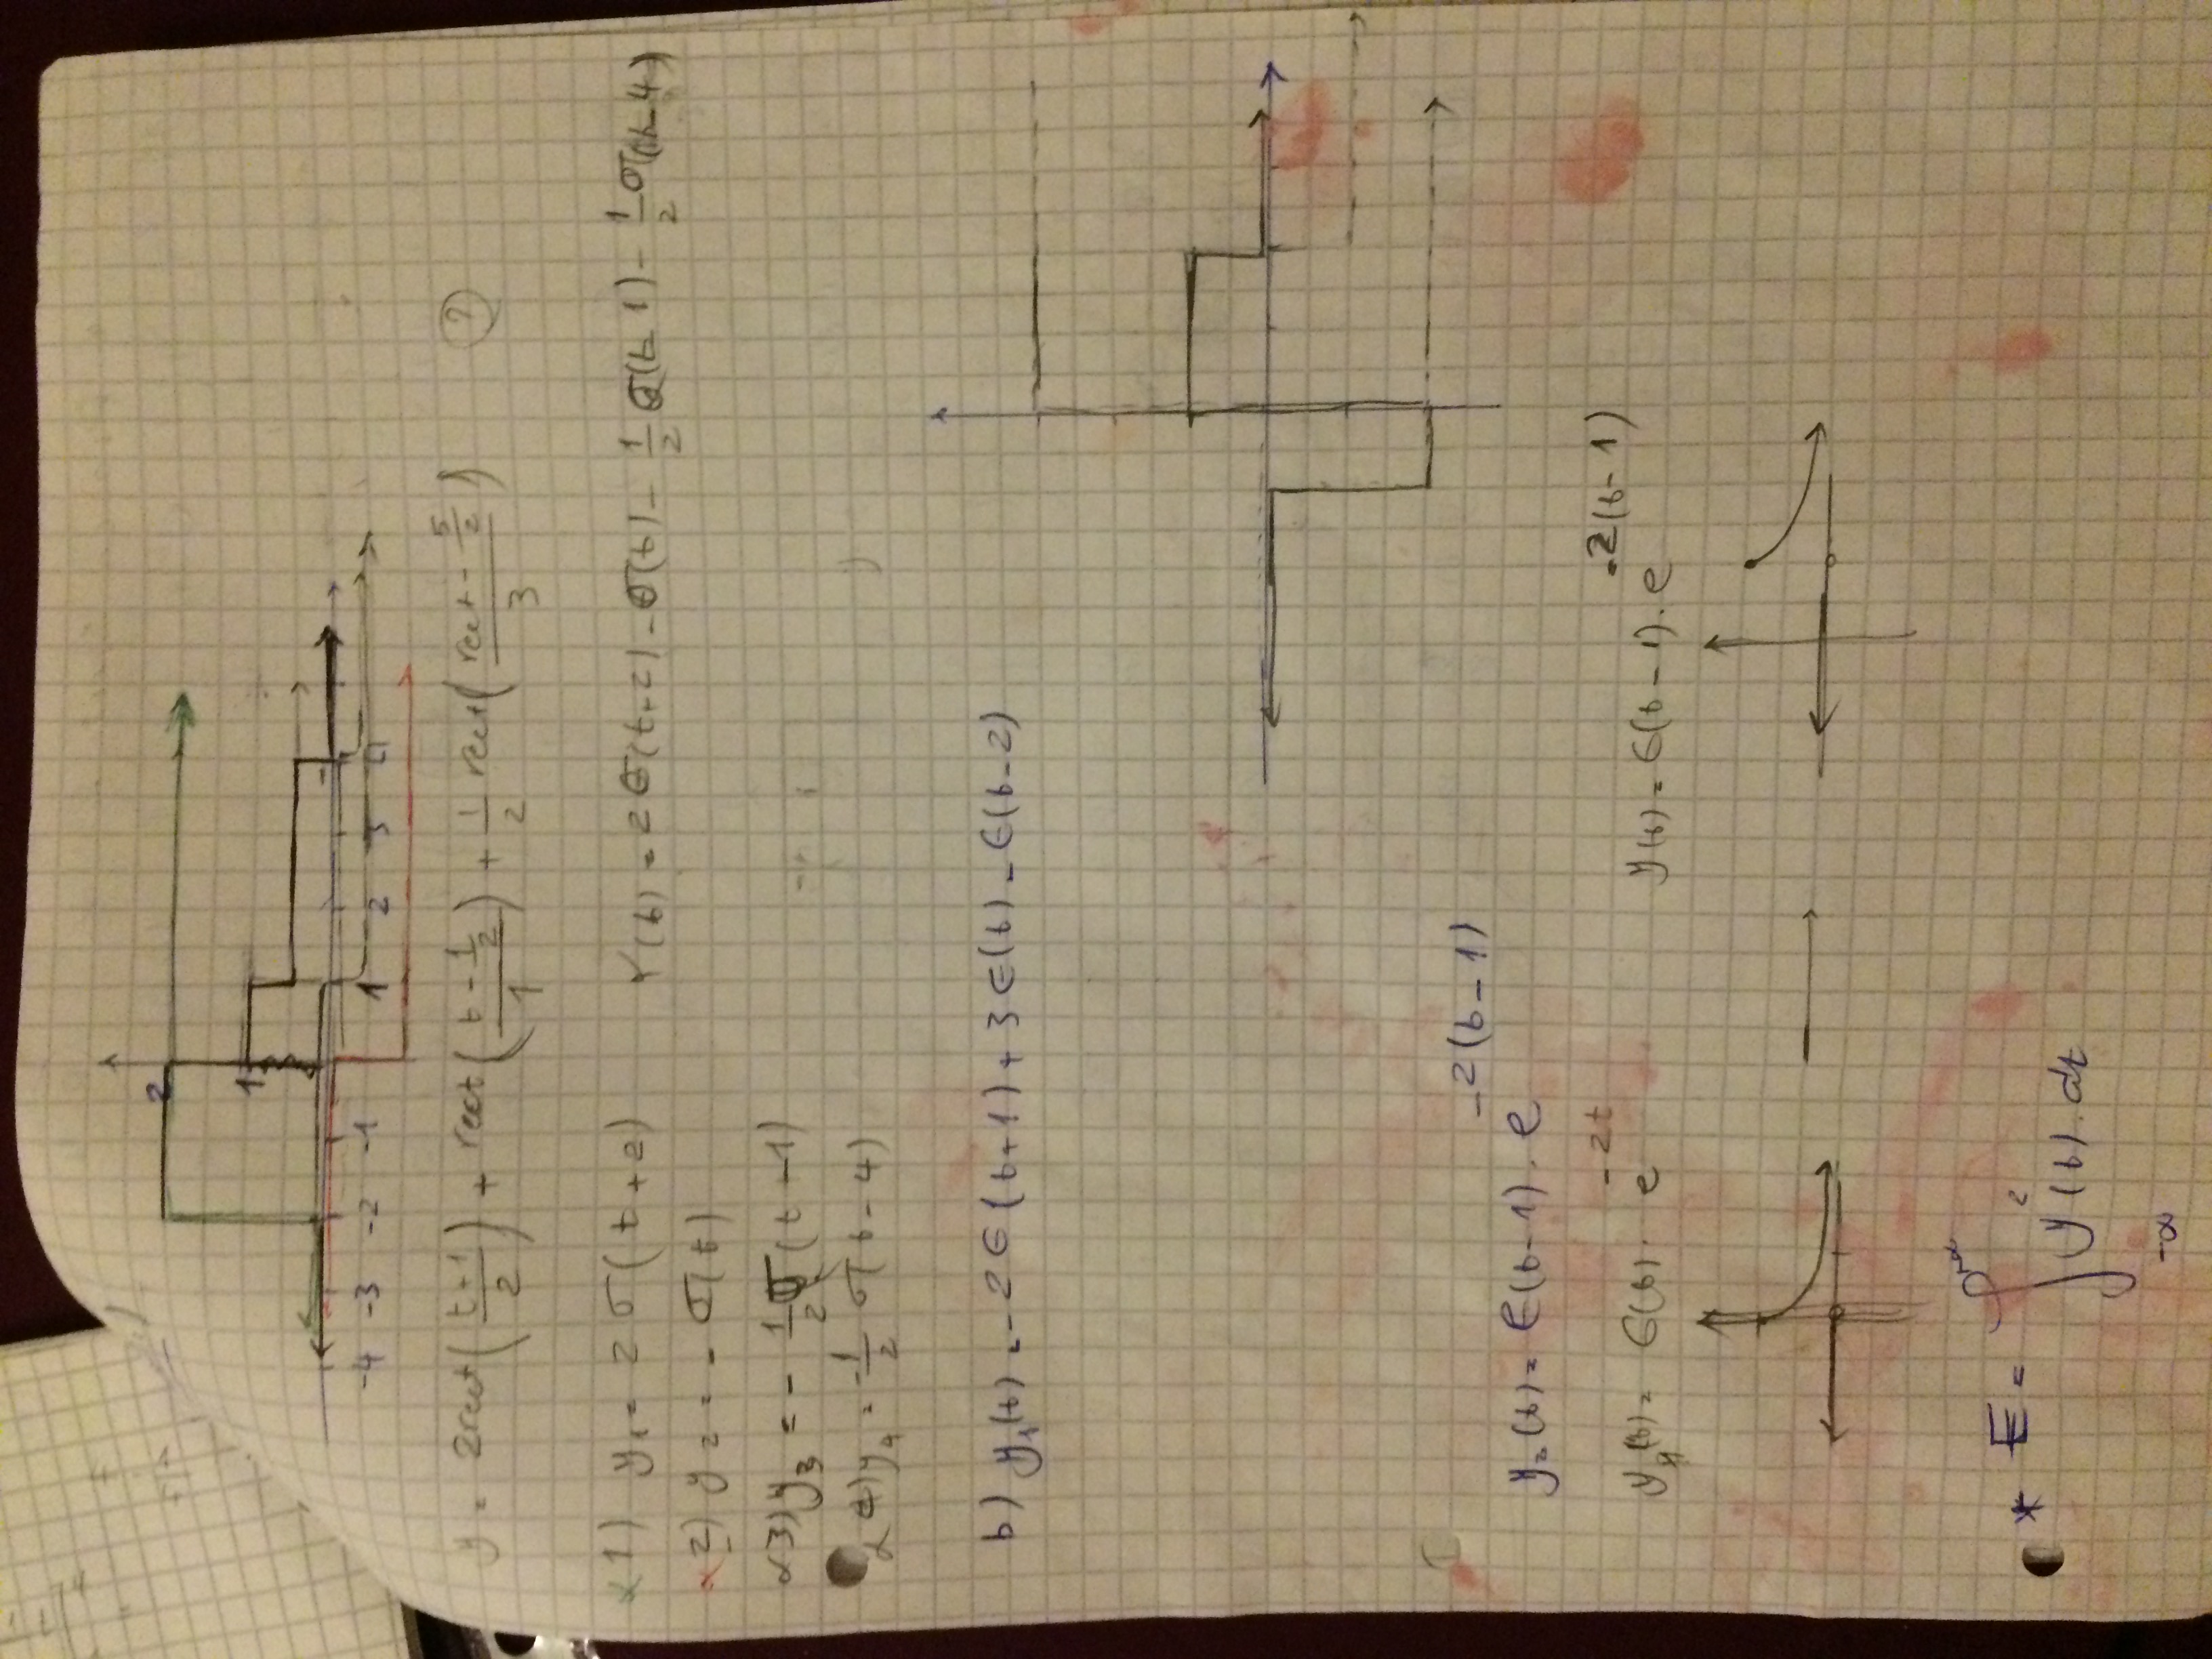 2
1
-4 -3 -2 -1 1 2 3 4
y = 2rect((t+1)/2) + rect((t-1/2)/1) + 1/2 rect((rect-5/2)/3) ?
α1) y₁ = 2σ(t+2) Y(t) = 2σ(t+2) - σ(t) - 1/2 σ(t-1) - 1/2 σ(t-4)
α2) y₂ = - σ(t)
α3) y₃ = - 1/2 σ(t-1)
α4) y₄ = -1/2 σ(t-4)
b) y₁(t) = -2ϵ(t+1) + 3ϵ(t) - ϵ(t-2)
y₂(t) = ϵ(t-1) · e^-2(t-1)
y₁(t) = ϵ(t) · e^-2t y(t) = ϵ(t-1) · e^-2(t-1)
* E = ∫_-∞^+∞ y²(t) · dt